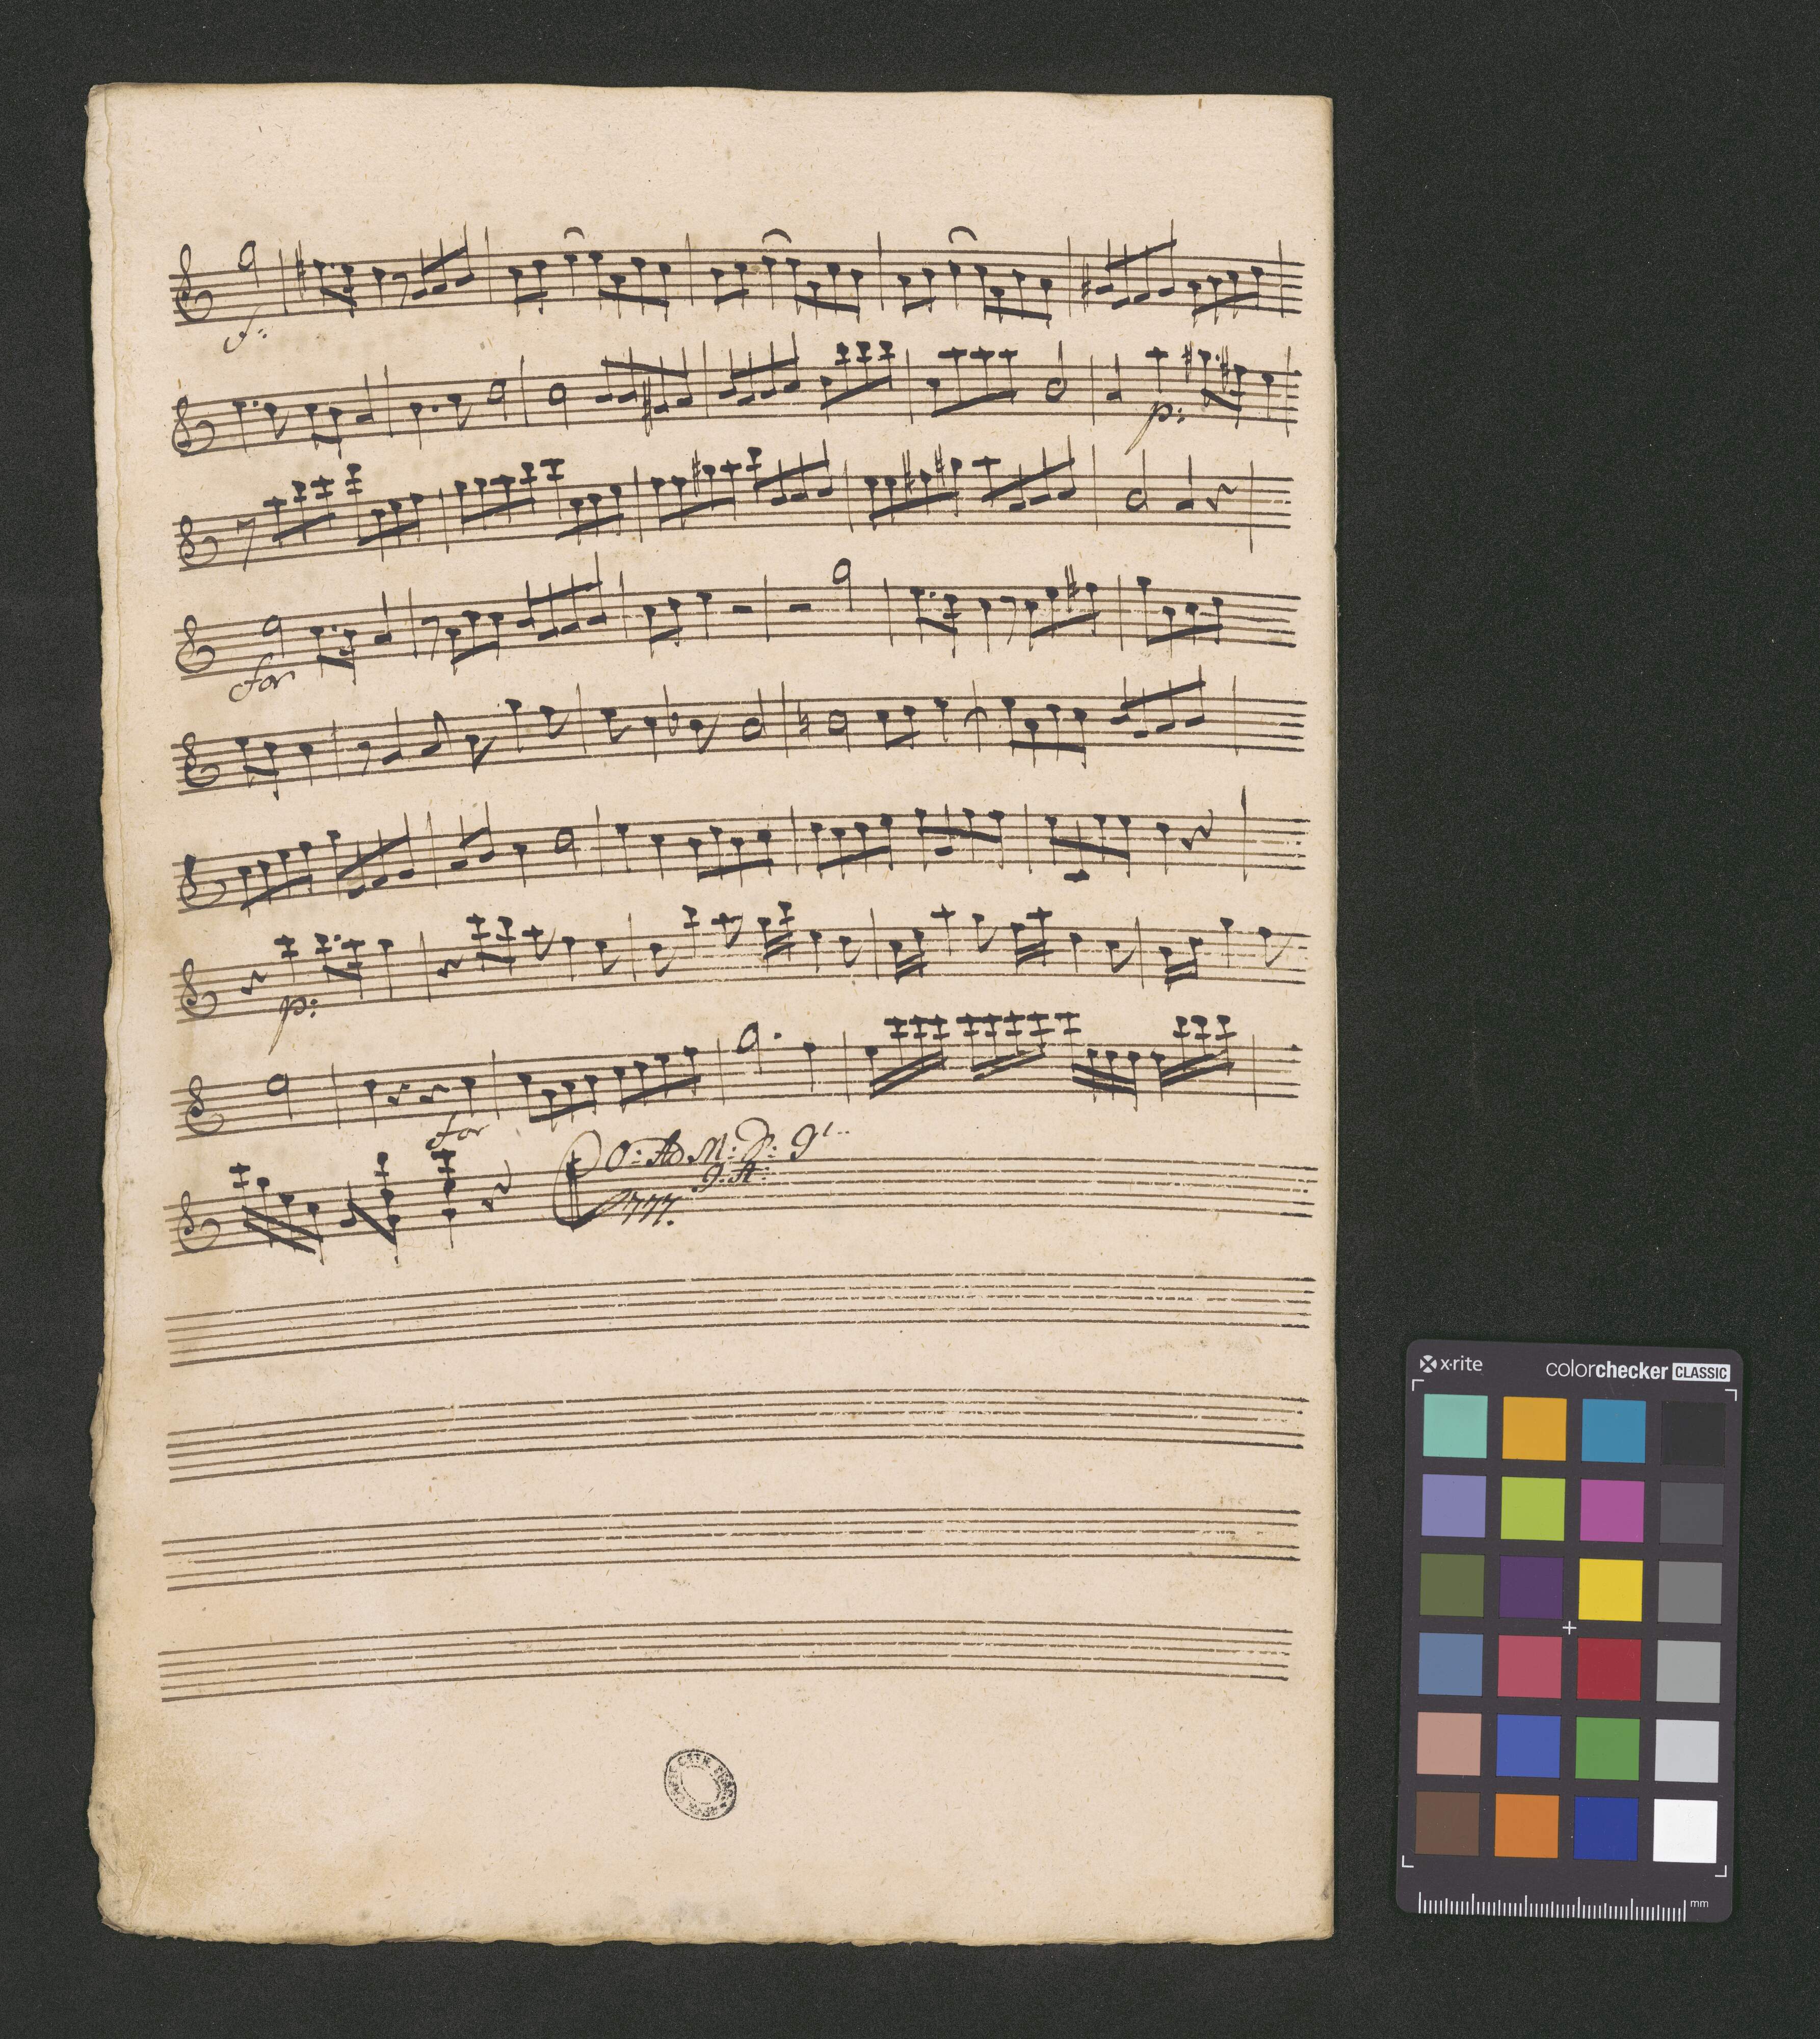 f:
p:
for
p:
for
O: A M: D: g
J. A:
1777.
x·rite
colorchecker CLASSIC
mm